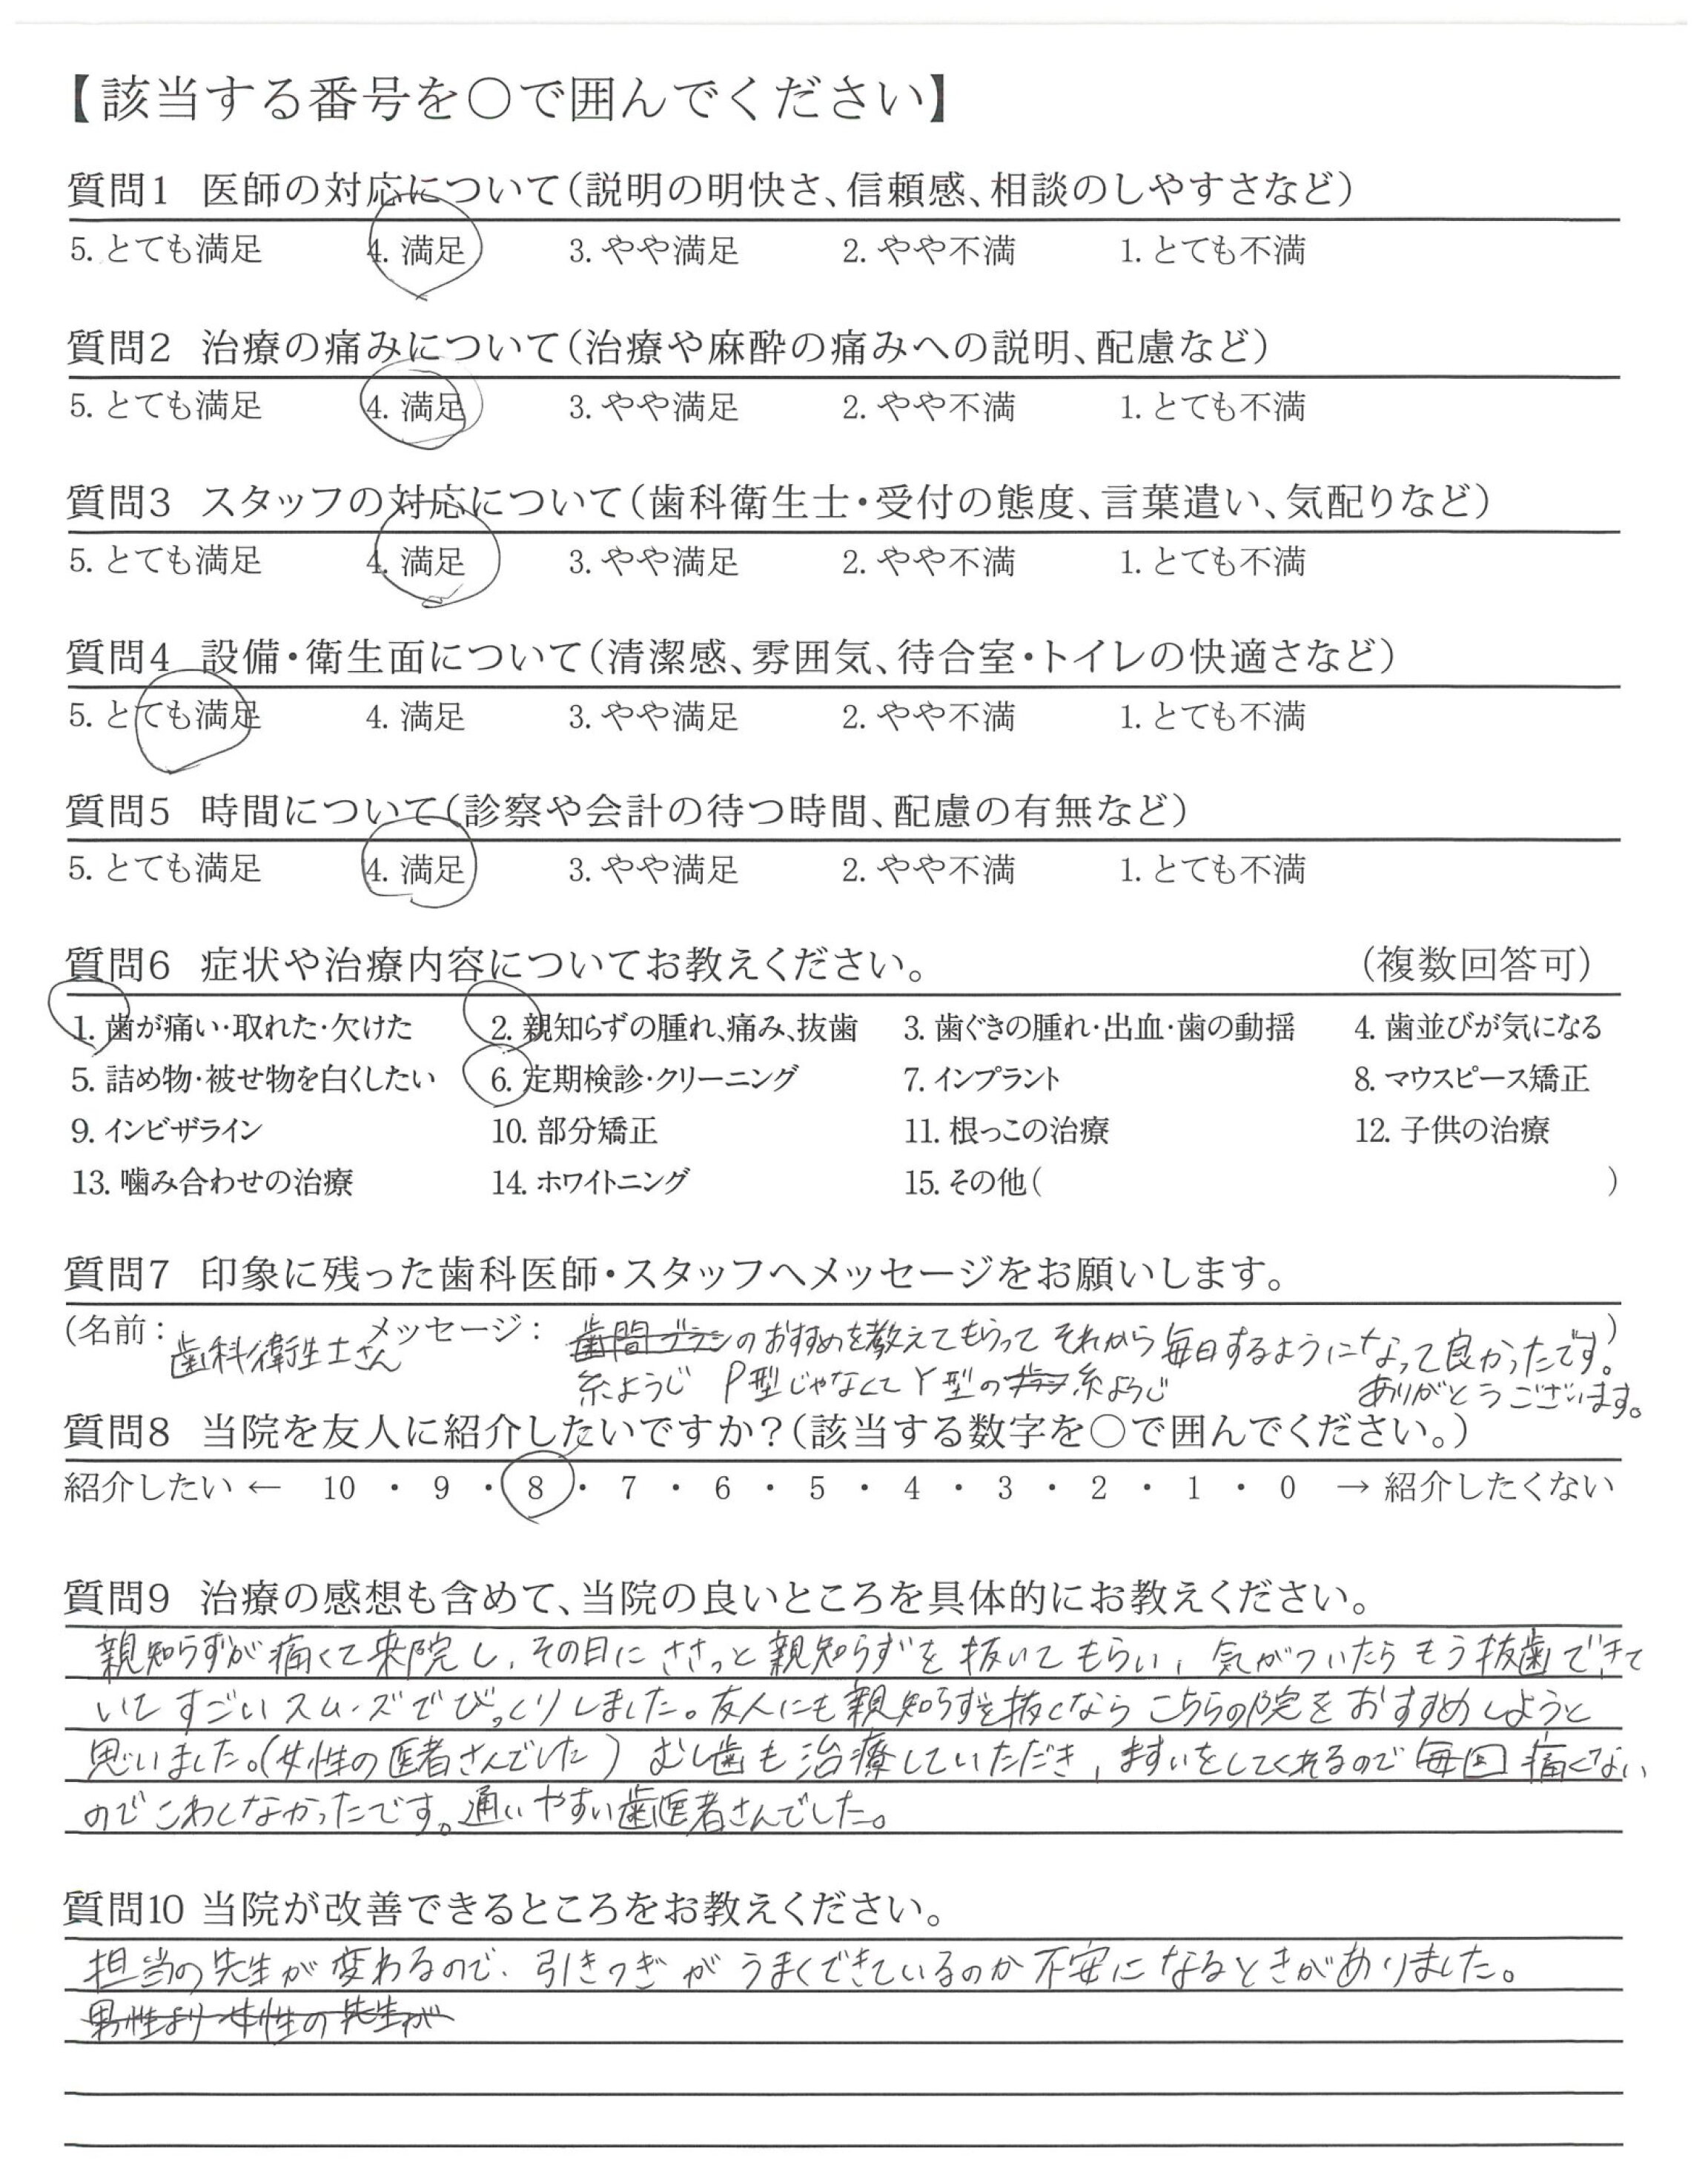 【該当する番号を○で囲んでください】
質問1 医師の対応について(説明の明快さ、信頼感、相談のしやすさなど)
5. とても満足 4. 満足 3. やや満足 2. やや不満 1. とても不満
質問2 治療の痛みについて(治療や麻酔の痛みへの説明、配慮など)
5. とても満足 4. 満足 3. やや満足 2. やや不満 1. とても不満
質問3 スタッフの対応について(歯科衛生士・受付の態度、言葉遣い、気配りなど)
5. とても満足 4. 満足 3. やや満足 2. やや不満 1. とても不満
質問4 設備・衛生面について(清潔感、雰囲気、待合室・トイレの快適さなど)
5. とても満足 4. 満足 3. やや満足 2. やや不満 1. とても不満
質問5 時間について(診察や会計の待つ時間、配慮の有無など)
5. とても満足 4. 満足 3. やや満足 2. やや不満 1. とても不満
質問6 症状や治療内容についてお教えください。 (複数回答可)
1. 歯が痛い・取れた・欠けた 2. 親知らずの腫れ、痛み、抜歯 3. 歯ぐきの腫れ・出血・歯の動揺 4. 歯並びが気になる
5. 詰め物・被せ物を白くしたい 6. 定期検診・クリーニング 7. インプラント 8. マウスピース矯正
9. インビザライン 10. 部分矯正 11. 根っこの治療 12. 子供の治療
13. 噛み合わせの治療 14. ホワイトニング 15. その他( )
質問7 印象に残った歯科医師・スタッフへメッセージをお願いします。
(名前: 歯科衛生士さん メッセージ: 歯間ブラシのおすすめを教えてもらってそれから毎日するようになって良かったです。)
糸ようじ P型じゃなくてY型のブラシ糸ようじ ありがとうございます。
質問8 当院を友人に紹介したいですか?(該当する数字を○で囲んでください。)
紹介したい ← 10 ・ 9 ・ 8 ・ 7 ・ 6 ・ 5 ・ 4 ・ 3 ・ 2 ・ 1 ・ 0 → 紹介したくない
質問9 治療の感想も含めて、当院の良いところを具体的にお教えください。
親知らずが痛くて来院し、その日にささっと親知らずを抜いてもらい、気がついたらもう抜歯できて
いてすごいスムーズでびっくりしました。友人にも親知らずを抜くならこちらの院をおすすめしようと
思いました。(女性の医者さんでした) むし歯も治療していただき、ますいをしてくれるので毎回痛くない
のでこわくなかったです。通いやすい歯医者さんでした。
質問10 当院が改善できるところをお教えください。
担当の先生が変わるので、引きつぎがうまくできているのか不安になるときがありました。
男性より女性の先生が